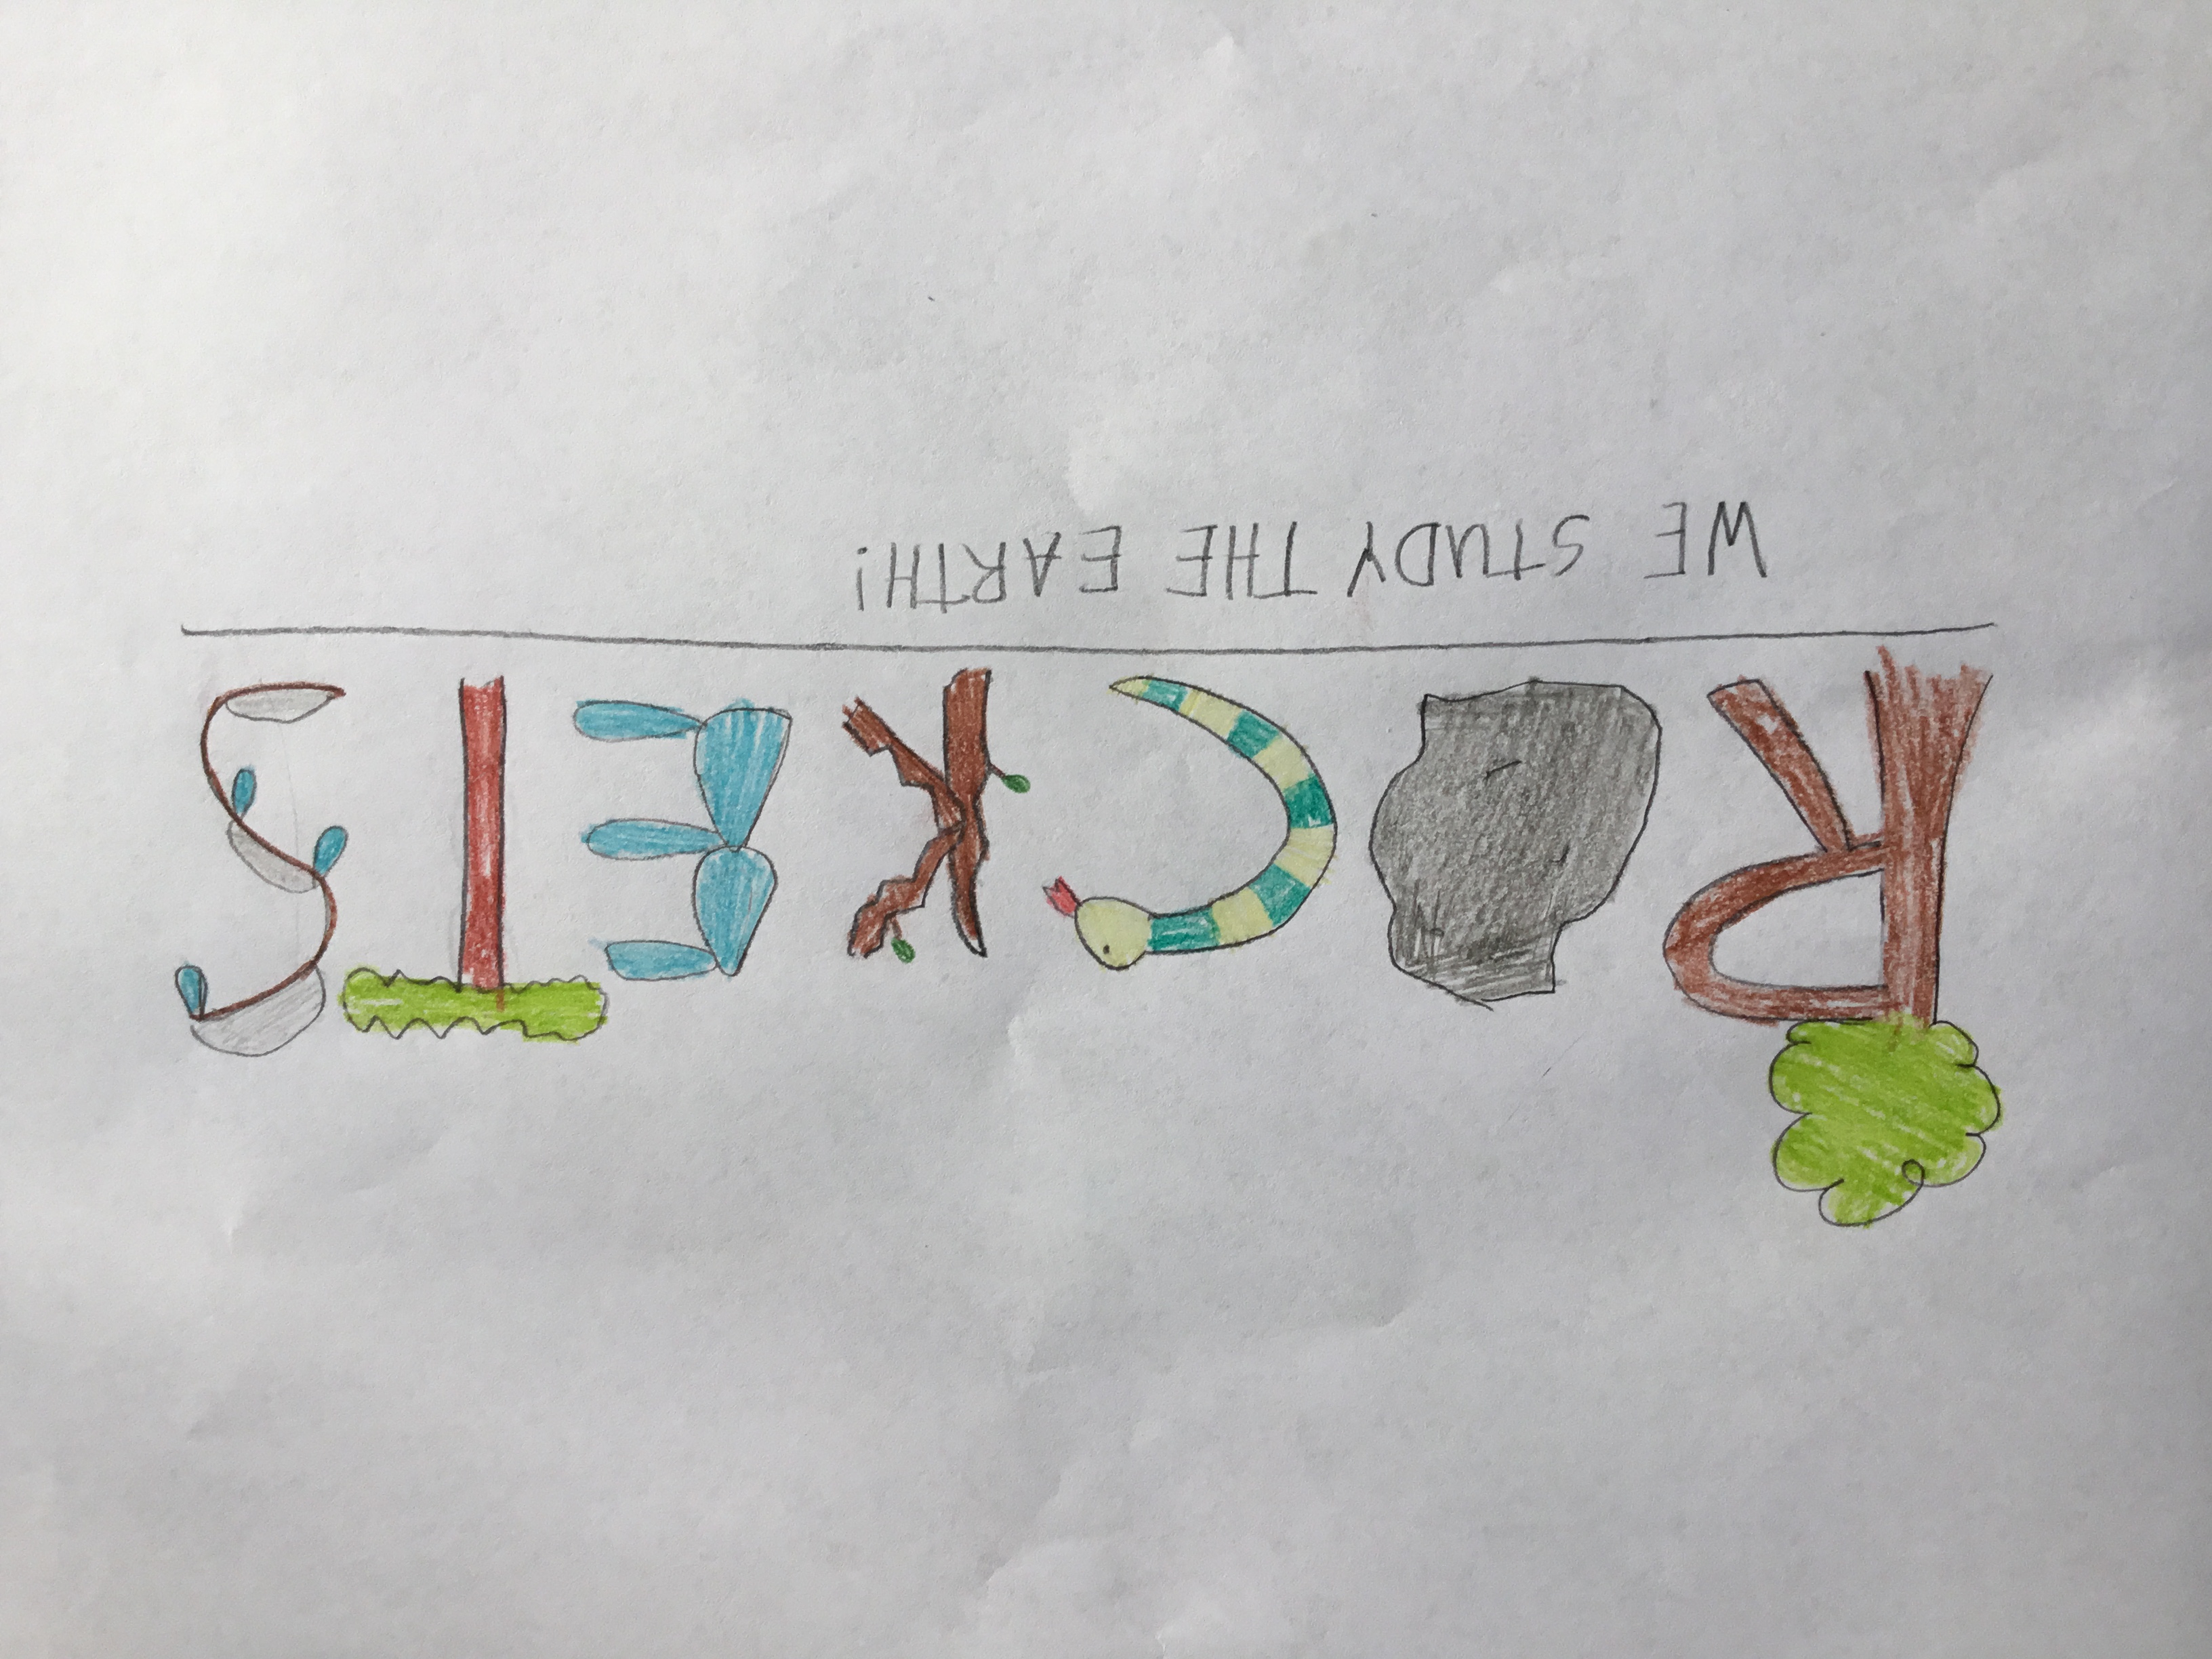 ROCKETS
WE STUDY THE EARTH!